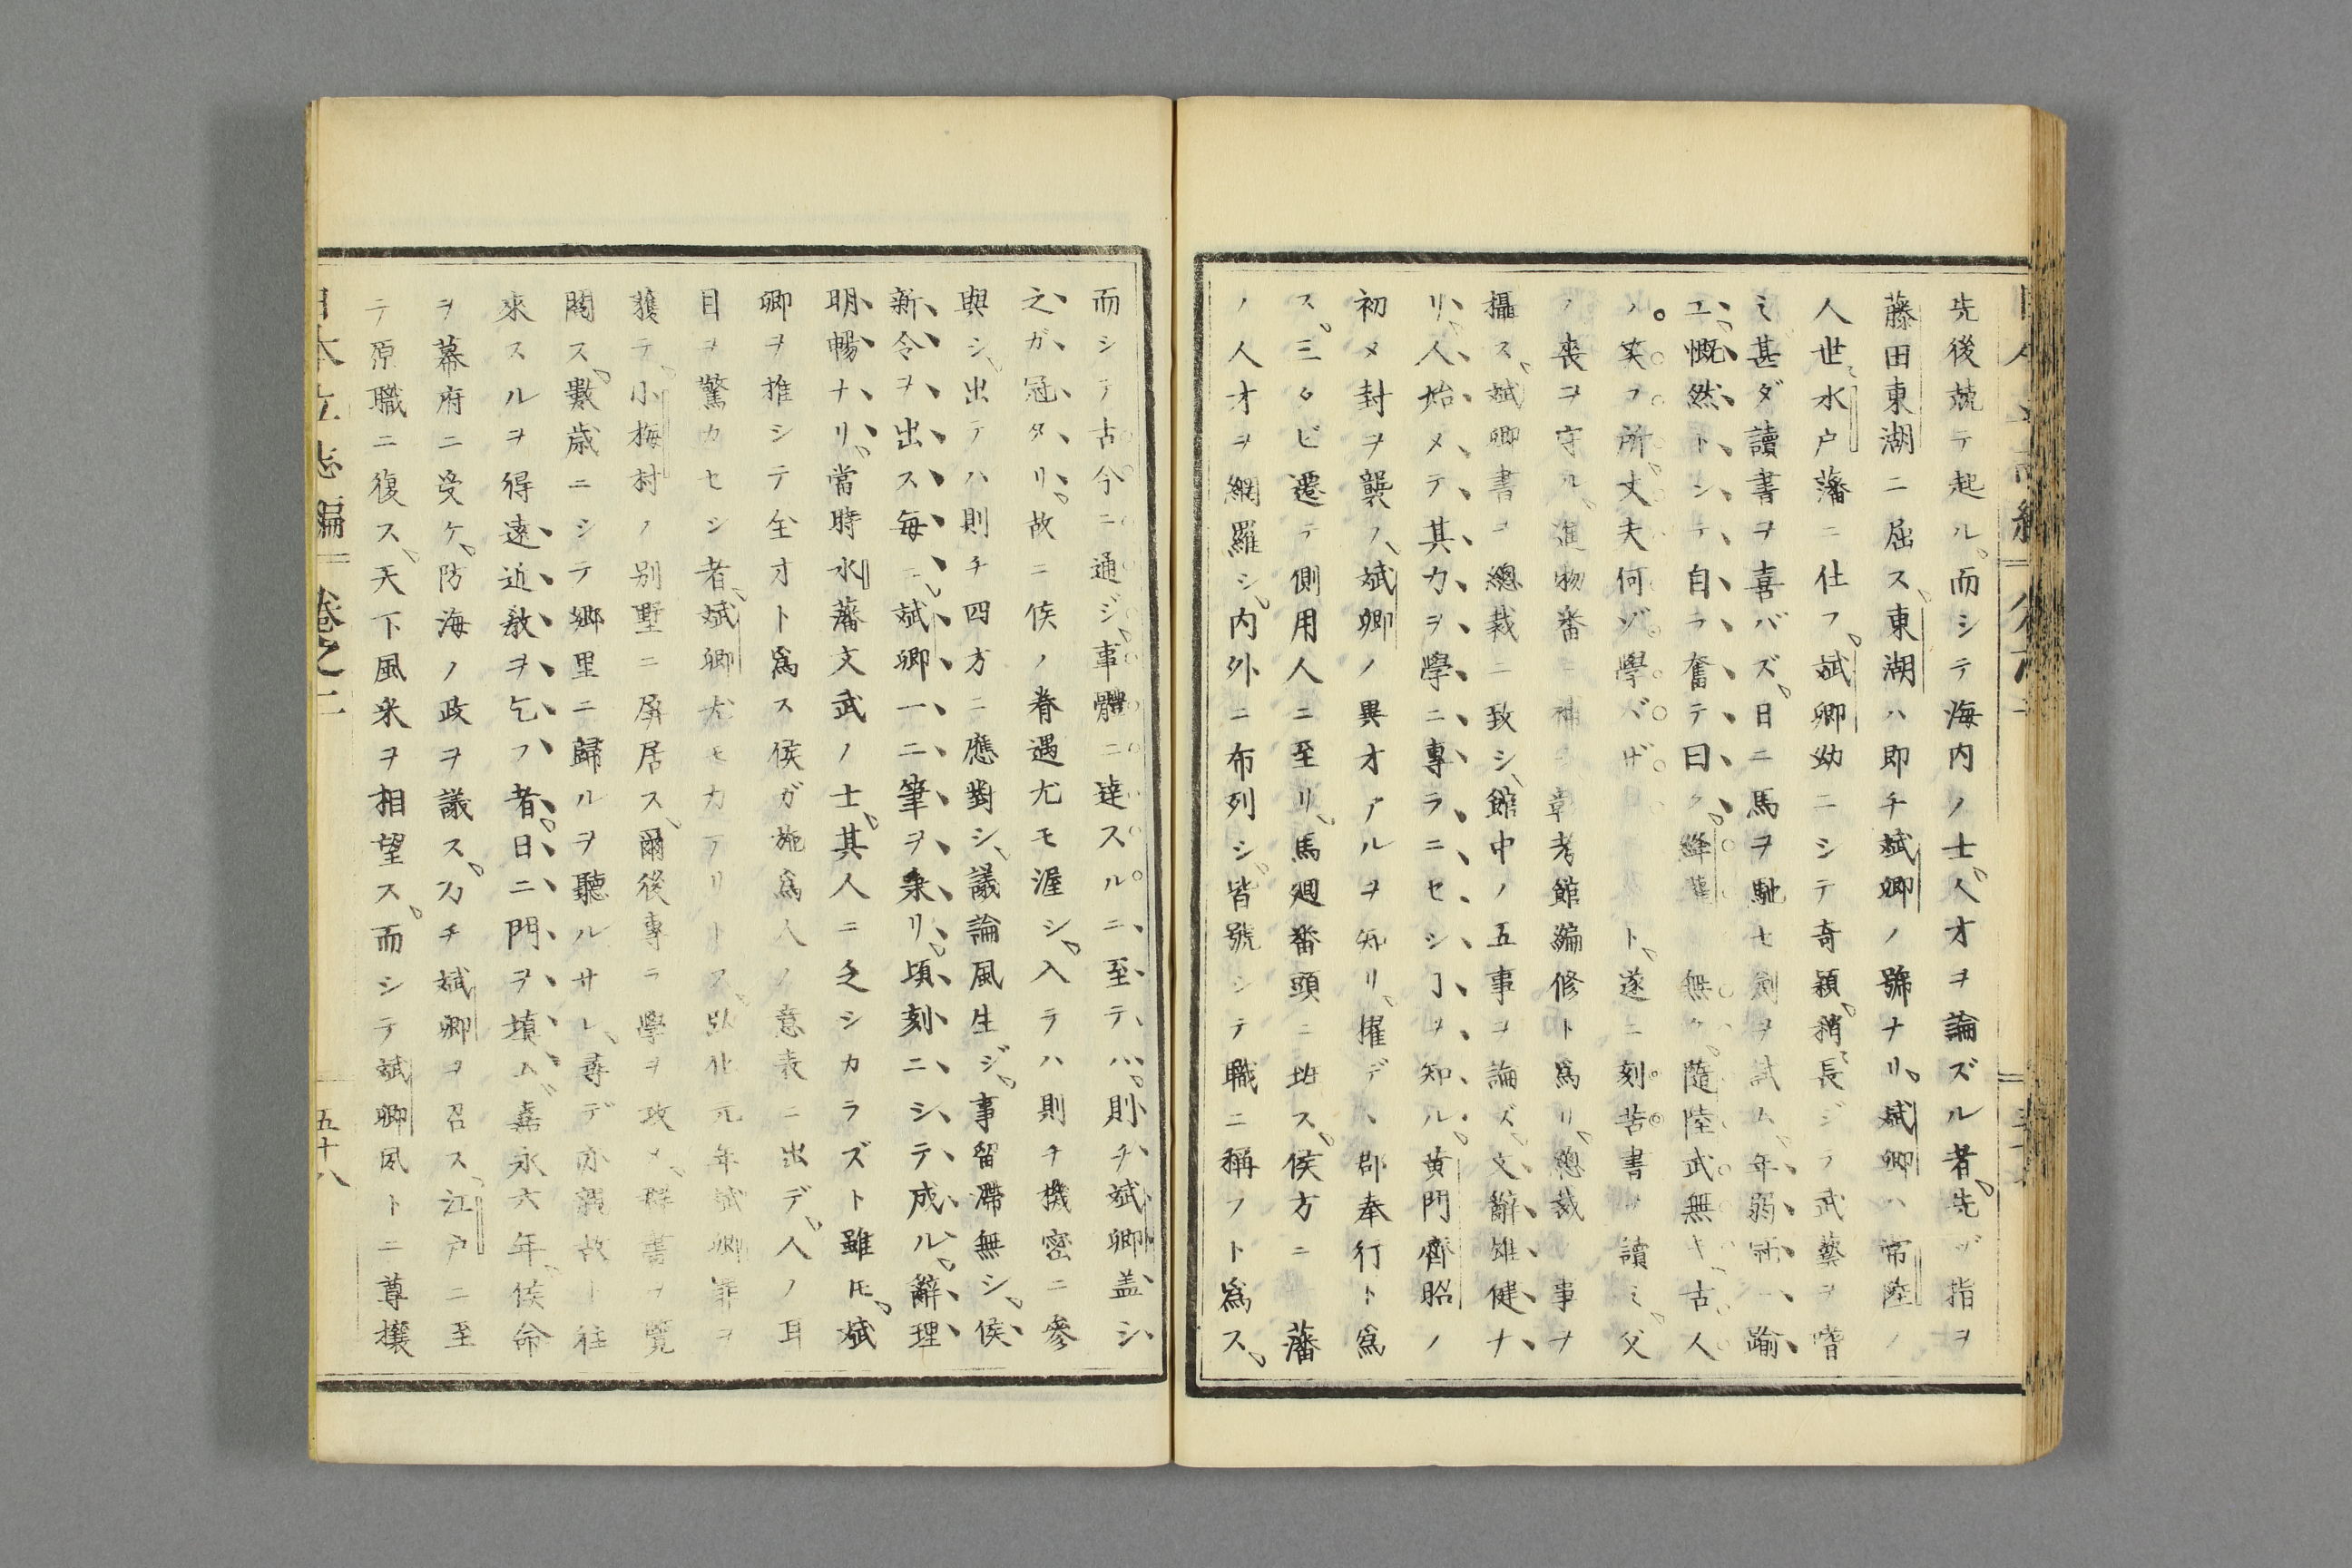 先後競テ起ル。而シテ海内ノ士、人才ヲ論ズル者、先ヅ指ヲ
藤田東湖ニ屈ス、東湖ハ即チ斌卿ノ號ナリ。斌卿ハ常陸ノ
人世〻水戸藩ニ仕フ。斌卿幼ニシテ奇穎、稍〻長ジテ武藝ヲ嗜
ミ甚ダ讀書ヲ喜バズ、日ニ馬ヲ馳セ劍ヲ試ム、年弱冠一踰
エ、慨然トシテ自ラ奮テ曰ク、絳灌無ク、隨陸武無キ、古人
ノ笑フ所、丈夫何ゾ學バザ ト、遂ニ刻苦書ヲ讀ミ、父
ノ喪ヲ守ル、進物番ニ補シ彰考館編修ト爲リ、總裁ノ事ヲ
攝ス、斌卿書ヲ總裁ニ致シ、館中ノ五事ヲ論ズ、文辭雄健ナ
リ、人始メテ其力ヲ學ニ專ラニセシヿヲ知ル。黄門齊昭ノ
初メ封ヲ襲フ、斌卿ノ異才アルヲ知リ、擢デヽ郡奉行ト爲
ス。三タビ遷テ側用人ニ至リ、馬廻番頭ニ班ス、侯方ニ 藩
ノ人才ヲ網羅シ、内外ニ布列シ、皆號シテ職ニ稱フト爲ス、
而シテ古今ニ通ジ、事體ニ達スルニ至テハ、則チ斌卿盖シ
之ガ冠タリ。故ニ侯ノ眷遇尤モ渥シ、入ラハ則チ機密ニ參
與シ、出テハ則チ四方ニ應對シ、議論風生ジ、事留滯無シ、侯
新令ヲ出ス毎ニ、斌卿一ニ筆ヲ秉リ、頃刻ニシテ成ル、辭理
明暢ナリ。當時水藩文武ノ士、其人ニ乏シカラズト雖𪜈、斌
卿ヲ推シテ全才ト爲ス侯ガ施爲人ノ意表ニ出デ、人ノ耳
目ヲ驚カセシ者、斌卿尤モ力アリトス、弘化元年斌卿罪ヲ
獲テ、小梅村ノ別墅ニ屏居ス、爾後專ラ學ヲ攻メ、群書ヲ覽
閲ス、數歳ニシテ郷里ニ歸ルヲ聽ルサレ、尋デ亦親故ト往
來スルヲ得遠近敎ヲ乞フ者、日ニ門ヲ塡ム、嘉永六年、侯命
ヲ幕府ニ受ケ、防海ノ政ヲ議ス、乃チ斌卿ヲ召ス、江戸ニ至
テ原職ニ復ス、天下風采ヲ相望ス。而シテ斌卿夙トニ尊攘
日本立志編 卷之二 五十八